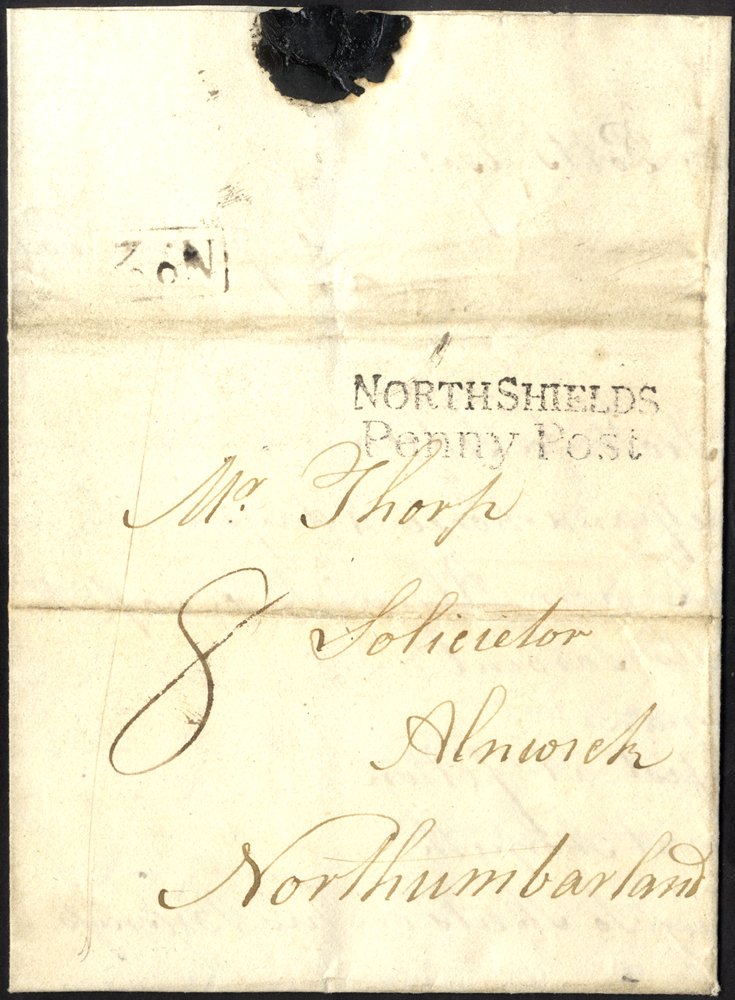 No 2
NORTH SHIELDS
Penny Post
Mr. Thorp
8 Solicietor
Alnwick
Northumbarland